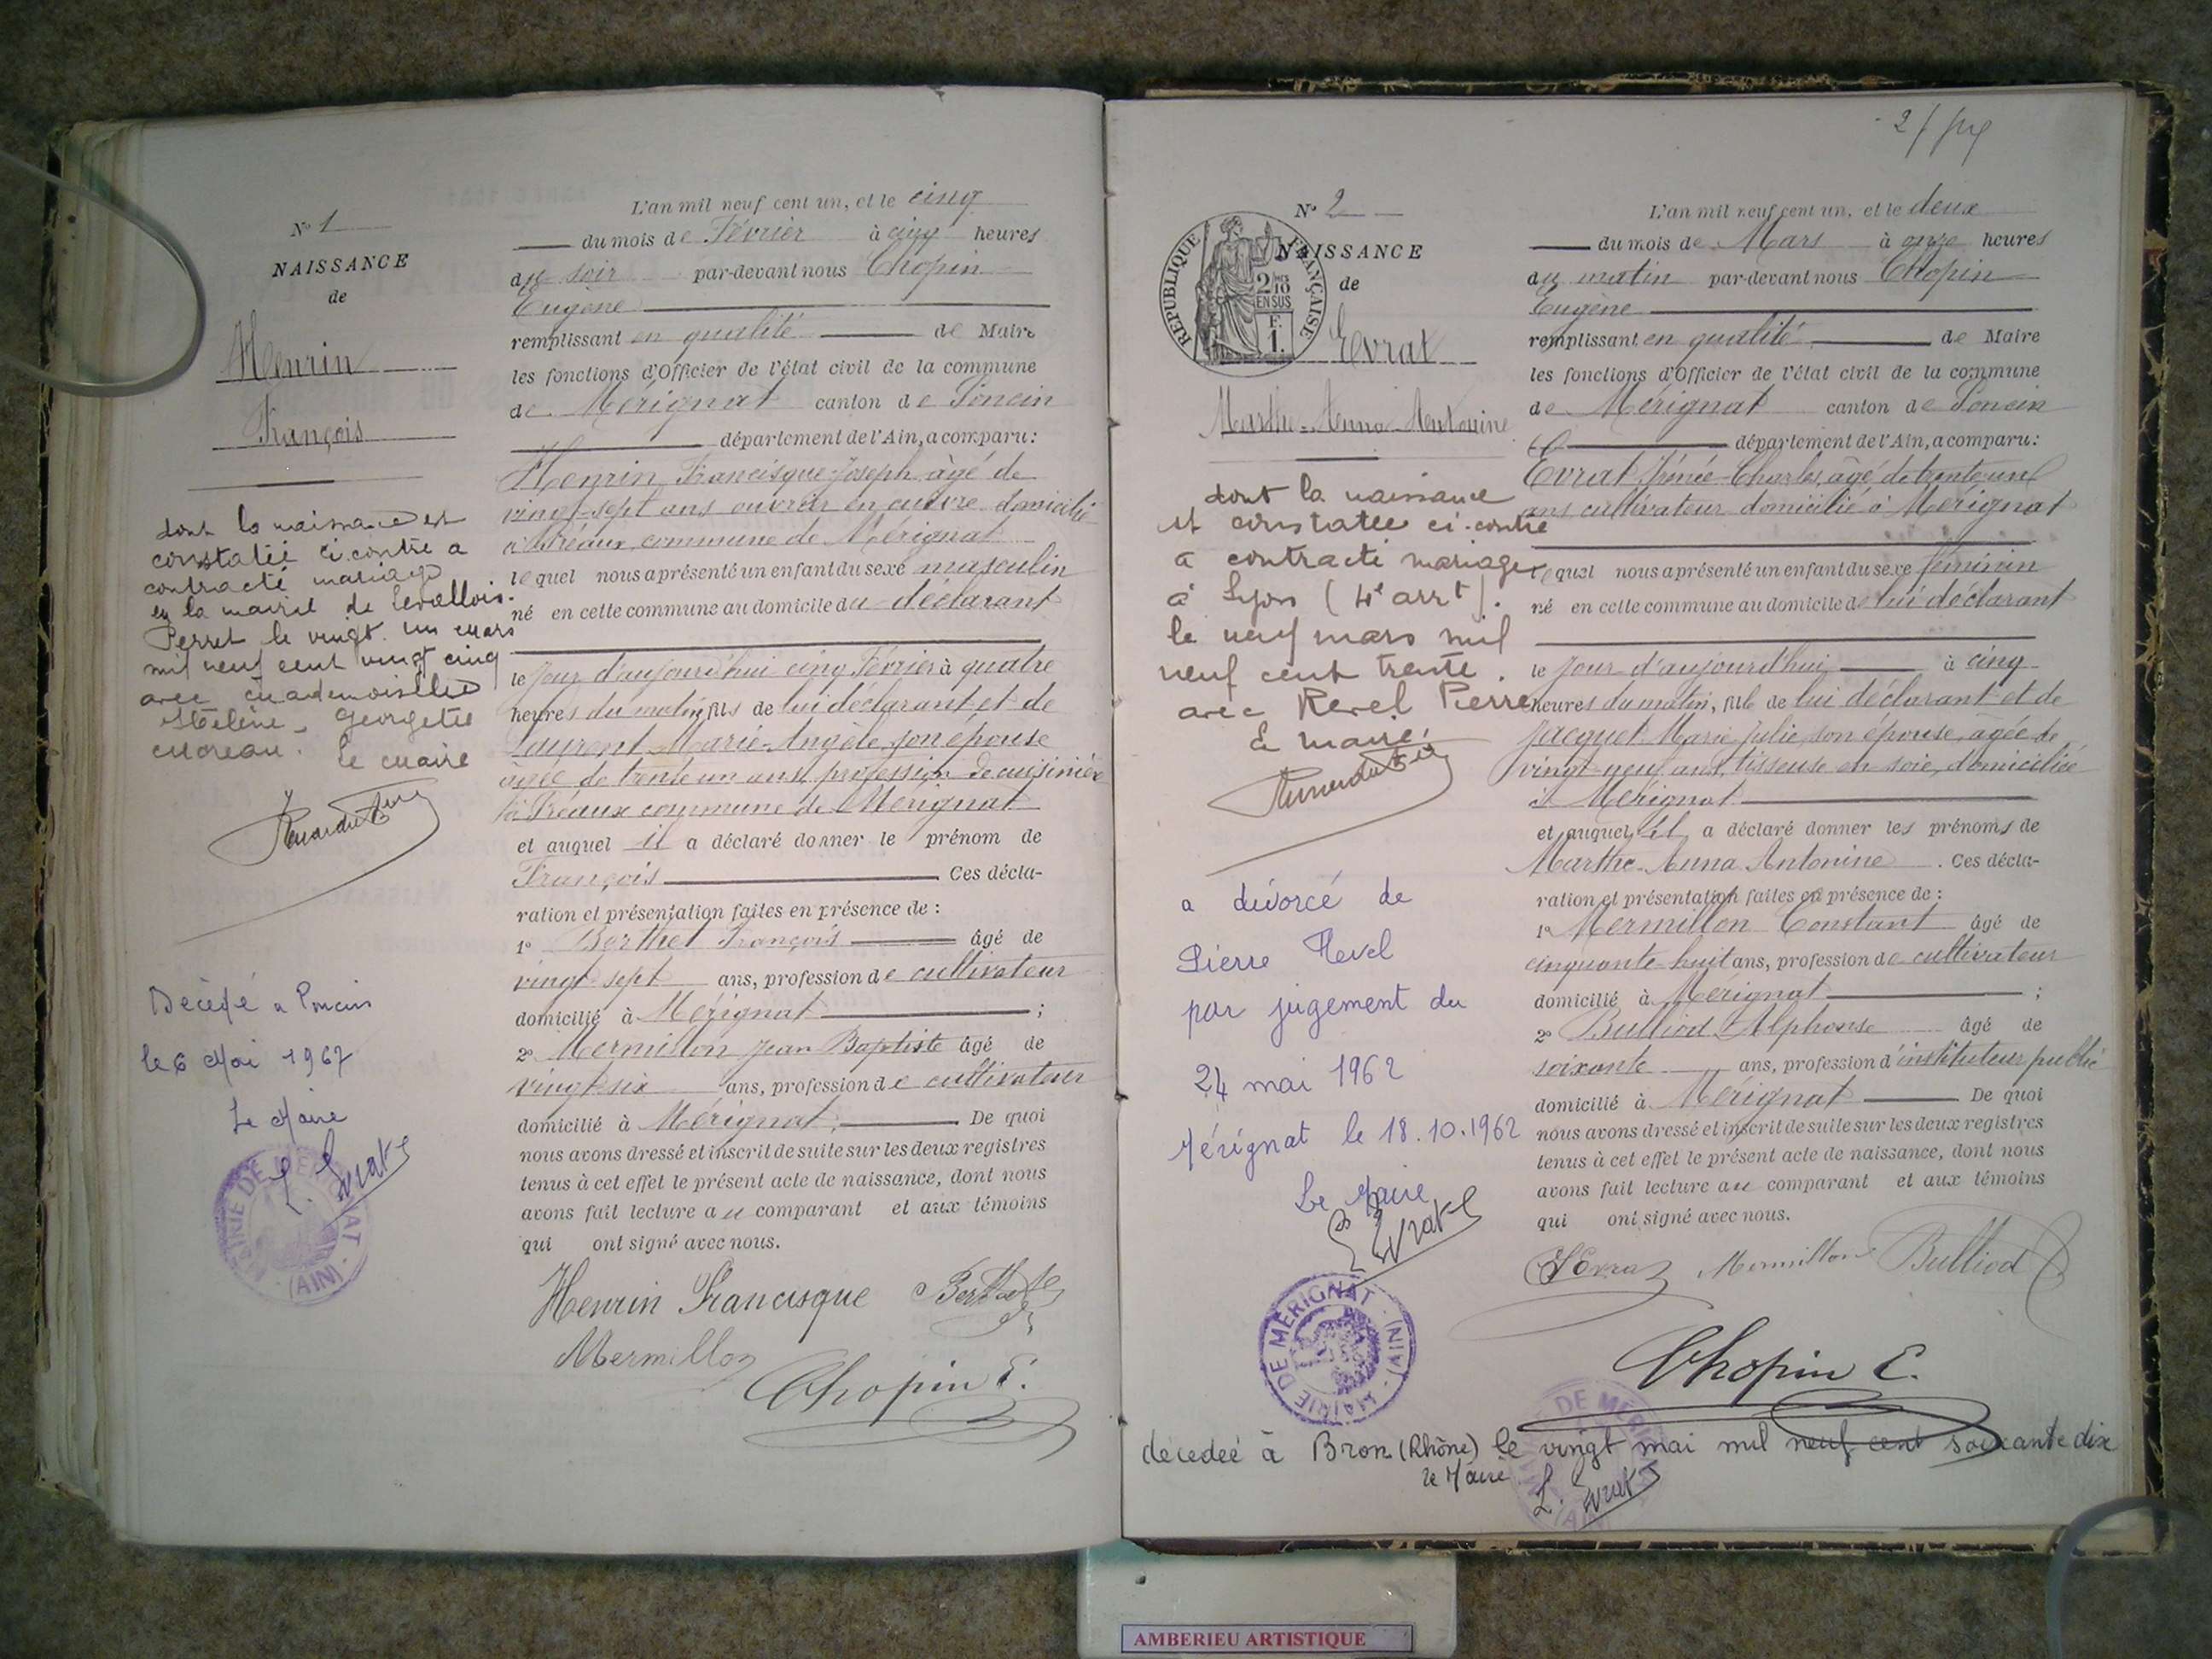 N° 1
NAISSANCE
de
Henrin
François
dont la naissance est
constatée ci-contre a
contracté mariage
en la mairie de Levallois-
Perret le vingt-un mars
mil neuf cent vingt cinq
avec mademoiselle
Hélène-Georgette
Moreau. Le Maire
Décédé à Poncin
le 6 Mai 1967
Le Maire
L. Evrat
MAIRIE DE MERIGNAT (AIN)
L'an mil neuf cent un, et le cinq
du mois de Février à cinq heures
du soir par-devant nous Chopin
Eugène
remplissant en qualité de Maire
les fonctions d'Officier de l'état civil de la commune
de Mérignat canton de Poncin
département de l'Ain, a comparu:
Henrin, Francisque-Joseph, âgé de
vingt-sept ans ouvrier en cuivre domicilié
à Préaux, commune de Mérignat
lequel nous a présenté un enfant du sexe masculin
né en cette commune au domicile du déclarant
le jour d'aujourd'hui cinq Février à quatre
heures du matin, fils de lui déclarant et de
Laurent Marie-Angèle, son épouse
âgée de trente un ans, profession de cuisinière
à Préaux commune de Mérignat
et auquel il a déclaré donner le prénom de
François Ces décla-
ration et présentation faites en présence de :
1° Berthet François âgé de
vingt-sept ans, profession de cultivateur
domicilié à Mérignat ;
2° Mermillon Jean Baptiste âgé de
vingt-six ans, profession de cultivateur
domicilié à Mérignat. De quoi
nous avons dressé et inscrit de suite sur les deux registres
tenus à cet effet le présent acte de naissance, dont nous
avons fait lecture au comparant et aux témoins
qui ont signé avec nous.
Henrin Francisque Berthet
Mermillon
Chopin E.
2/
N° 2
REPUBLIQUE FRANÇAISE
2/10 EN SUS
F. 1.
NAISSANCE
de
Evrat
Marthe-Anna-Antonine
dont la naissance
est constatée ci-contre
a contracté mariage
à Lyon (4e arrt).
le neuf mars mil
neuf cent trente.
avec Revel Pierre
Le Maire,
a divorcé de
Pierre Revel
par jugement du
24 mai 1962
Mérignat le 18.10.1962
Le Maire
L. Evrat
MAIRIE DE MERIGNAT (AIN)
L'an mil neuf cent un, et le deux
du mois de Mars à onze heures
du matin par-devant nous Chopin
Eugène
remplissant en qualité de Maire
les fonctions d'Officier de l'état civil de la commune
de Mérignat canton de Poncin
département de l'Ain, a comparu:
Evrat Irénée-Charles, âgé de trente un
ans cultivateur domicilié à Mérignat
lequel nous a présenté un enfant du sexe féminin
né en cette commune au domicile de lui déclarant
le jour d'aujourd'hui à cinq
heures du matin, fille de lui déclarant et de
Jacquet Marie Julie, son épouse, âgée de
vingt-neuf ans, tisseuse en soie, domiciliée
à Mérignat
et auquel il a déclaré donner les prénoms de
Marthe-Anna Antonine. Ces décla-
ration et présentation faites en présence de :
1° Mermillon Constant âgé de
cinquante-huit ans, profession de cultivateur
domicilié à Mérignat ;
2° Bulliod Alphonse âgé de
soixante ans, profession d'instituteur public
domicilié à Mérignat De quoi
nous avons dressé et inscrit de suite sur les deux registres
tenus à cet effet le présent acte de naissance, dont nous
avons fait lecture au comparant et aux témoins
qui ont signé avec nous.
Evrat Mermillon Bulliod
Chopin E.
décédée à Bron (Rhône) le vingt mai mil neuf cent soixante dix
le Maire
L. Evrat
AMBERIEU ARTISTIQUE